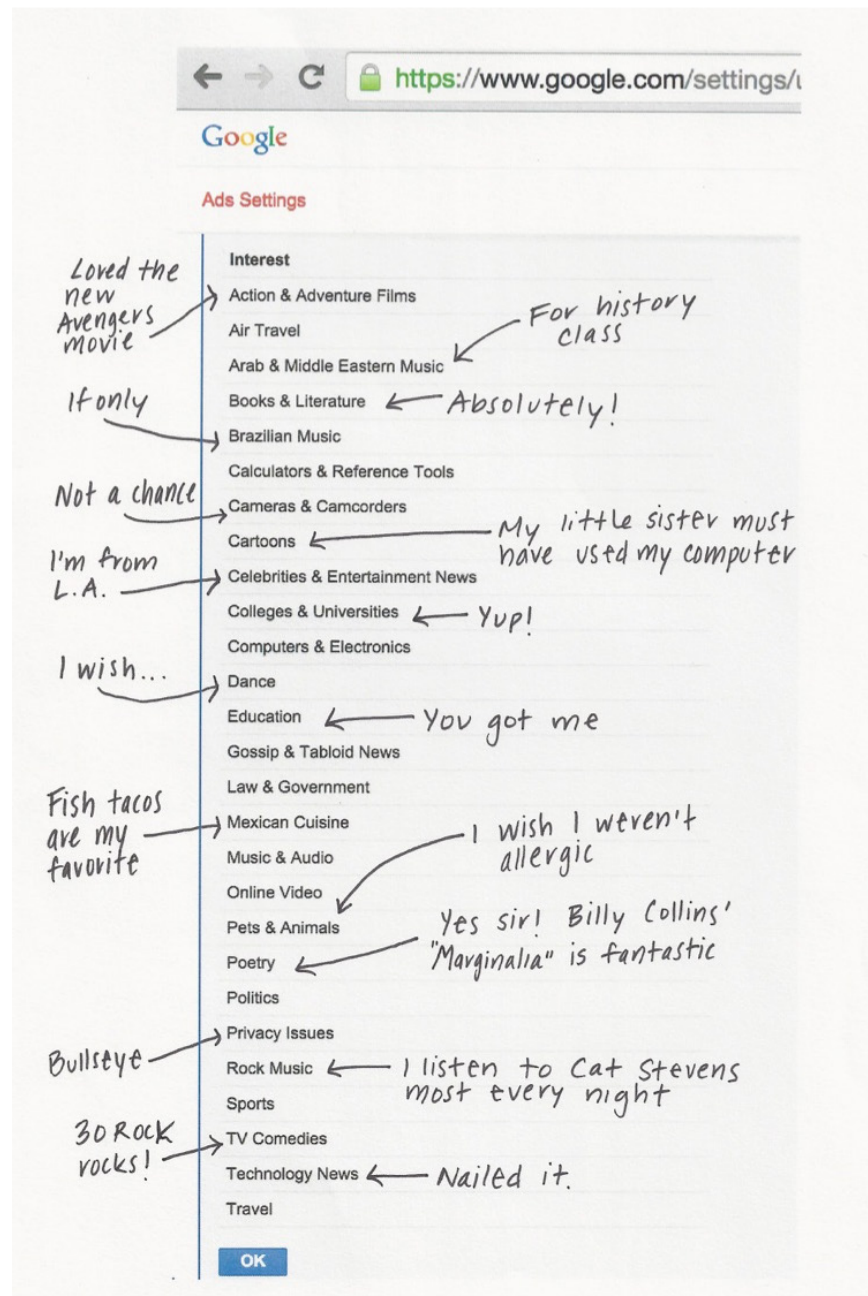 https://www.google.com/settings/u
Google
Ads Settings
Interest
Loved the
new
Avengers
movie
Action & Adventure Films
Air Travel
For history
class
Arab & Middle Eastern Music
Books & Literature
Absolutely!
If only
Brazilian Music
Calculators & Reference Tools
Not a chance
Cameras & Camcorders
Cartoons
My little sister must
have used my computer
I'm from
L.A.
Celebrities & Entertainment News
Colleges & Universities
Yup!
Computers & Electronics
I wish...
Dance
Education
You got me
Gossip & Tabloid News
Law & Government
Fish tacos
are my
favorite
Mexican Cuisine
I wish I weren't
allergic
Music & Audio
Online Video
Pets & Animals
Yes sir! Billy Collins'
"Marginalia" is fantastic
Poetry
Politics
Bullseye
Privacy Issues
Rock Music
I listen to Cat Stevens
most every night
Sports
30 Rock
rocks!
TV Comedies
Technology News
Nailed it.
Travel
OK